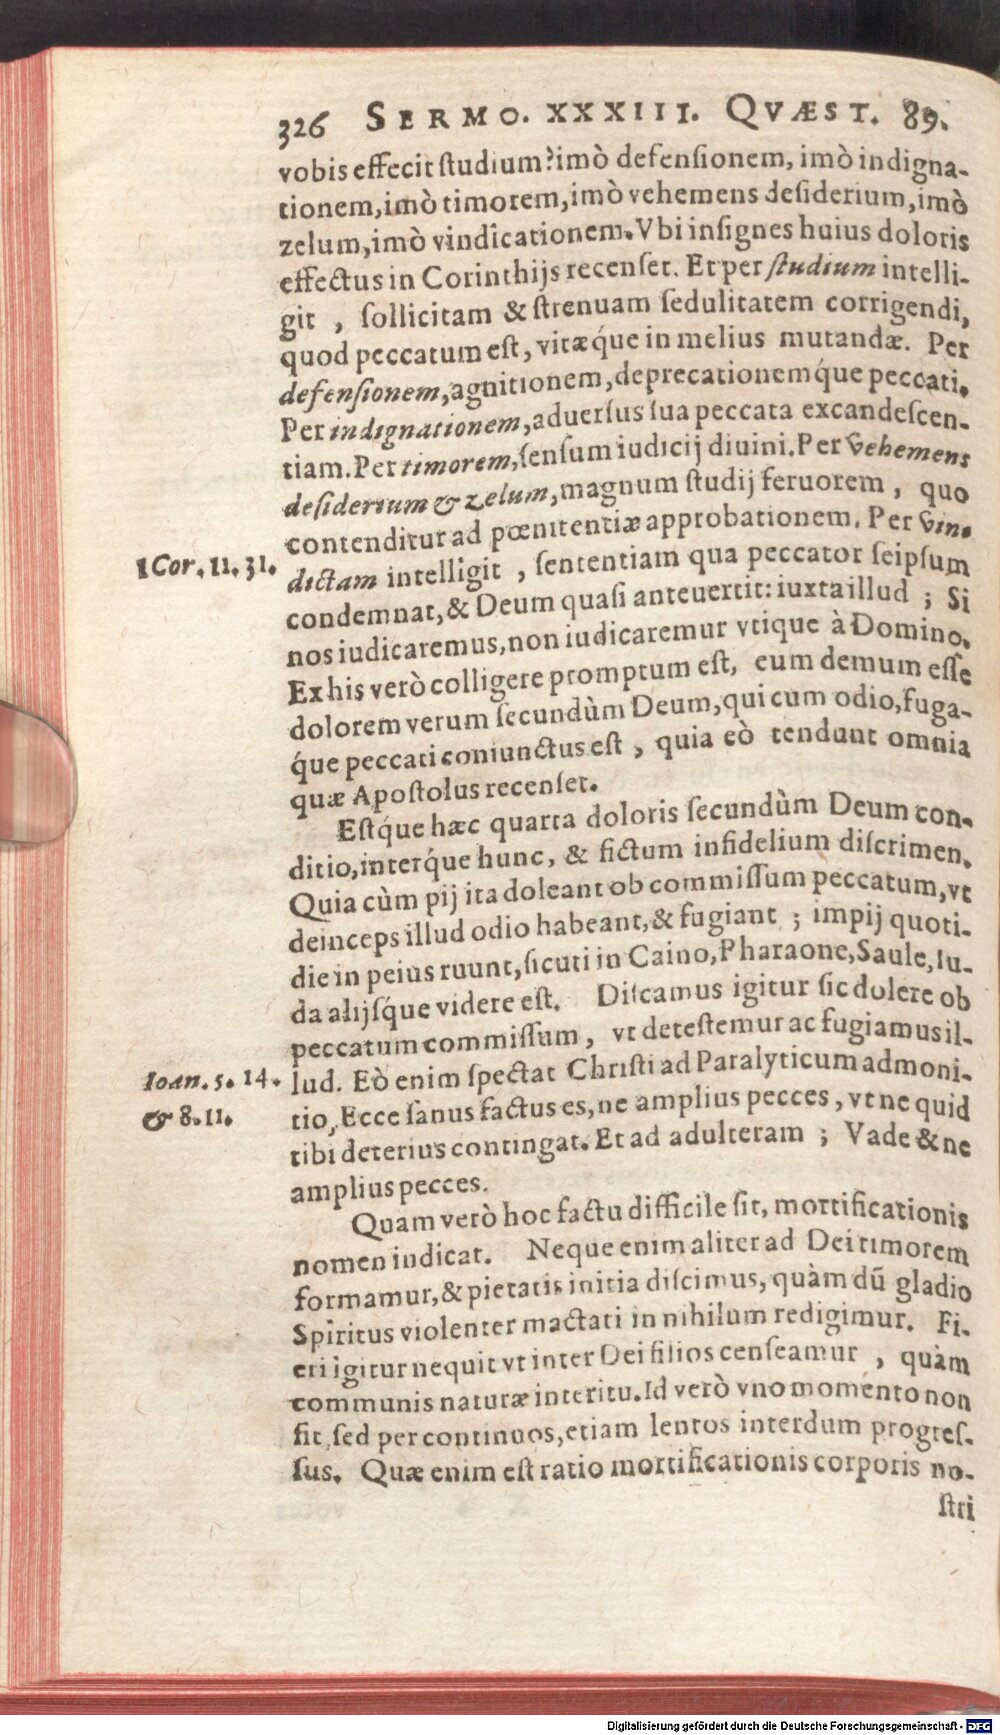 326 SERMO. XXXIII. QVÆST. 89.
vobis effecit ſtudium? imò defenſionem, imò indigna-
tionem, imò timorem, imò vehemens deſiderium, imò
zelum, imò vindicationem. Vbi inſignes huius doloris
effectus in Corinthijs recenſet. Et per ſtudium intelli-
git , ſollicitam & ſtrenuam ſedulitatem corrigendi,
quod peccatum eſt, vitæq́ue in melius mutandæ. Per
defenſionem, agnitionem, deprecationemq́ue peccati.
Per indignationem, aduerſus ſua peccata excandeſcen-
tiam. Per timorem, ſenſum iudicij diuini. Per vehemens
deſiderium & zelum, magnum ſtudij feruorem , quo
contenditur ad pœnitentiæ approbationem. Per vin-
1 Cor. 11. 31.
dictam intelligit , ſententiam qua peccator ſeipſum
condemnat, & Deum quaſi anteuertit: iuxta illud ; Si
nos iudicaremus, non iudicaremur vtique à Domino.
Ex his verò colligere promptum eſt, eum demum eſſe
dolorem verum ſecundùm Deum, qui cum odio, fuga-
q́ue peccati coniunctus eſt , quia eò tendunt omnia
quæ Apoſtolus recenſet.
Eſtq́ue hæc quarta doloris ſecundùm Deum con-
ditio, interq́ue hunc, & fictum infidelium diſcrimen.
Quia cùm pij ita doleant ob commiſſum peccatum, vt
deinceps illud odio habeant, & fugiant ; impij quoti-
die in peius ruunt, ſicuti in Caino, Pharaone, Saule, Iu-
da alijſq́ue videre eſt. Diſcamus igitur ſic dolere ob
peccatum commiſſum , vt deteſtemur ac fugiamus il-
Ioan. 5. 14.
lud. Eò enim ſpectat Chriſti ad Paralyticum admoni-
& 8. 11.
tio, Ecce ſanus factus es, ne amplius pecces, vt ne quid
tibi deterius contingat. Et ad adulteram ; Vade & ne
amplius pecces.
Quam verò hoc factu difficile ſit, mortificationis
nomen indicat. Neque enim aliter ad Dei timorem
formamur, & pietatis initia diſcimus, quàm dū gladio
Spiritus violenter mactati in nihilum redigimur. Fi-
eri igitur nequit vt inter Dei filios cenſeamur , quàm
communis naturæ interitu. Id verò vno momento non
fit, ſed per continuos, etiam lentos interdum progreſ-
ſus. Quæ enim eſt ratio mortificationis corporis no-
ſtri
Digitalisierung gefördert durch die Deutsche Forschungsgemeinschaft - DFG